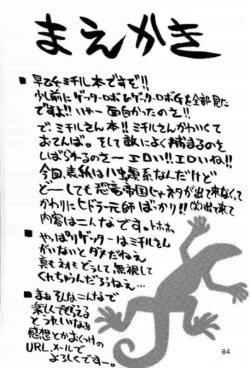 まえがき
■早乙女ミチル本ですぞ!!
少し前にゲッターロボ&ゲッターロボGを全部見た
ですよ!! いやー面白かったのさ!!
で、ミチルさん本!! ミチルさんがかわいくて
おてんば。そして敵によく捕まるのさ
しばられるのさー エロい!! エロいね!!
今回、表紙はハ虫類系なんだけど
どーしても恐竜帝国じゃネタが出て来なくて
かわりにヒドラー元帥ばっかり!!(笑)出来て
内容はこんなです。トホホ、
■やっぱりゲッターはミチルさん
がいないとダメだねぇ
真もネオもどうして無視して
くれちゃんだろうねぇ…
■まあそんなこんなで
楽しんでもらえる
とうれしいなあ
感想とかまくつけの
URL、メールで
よろしくですー。
04